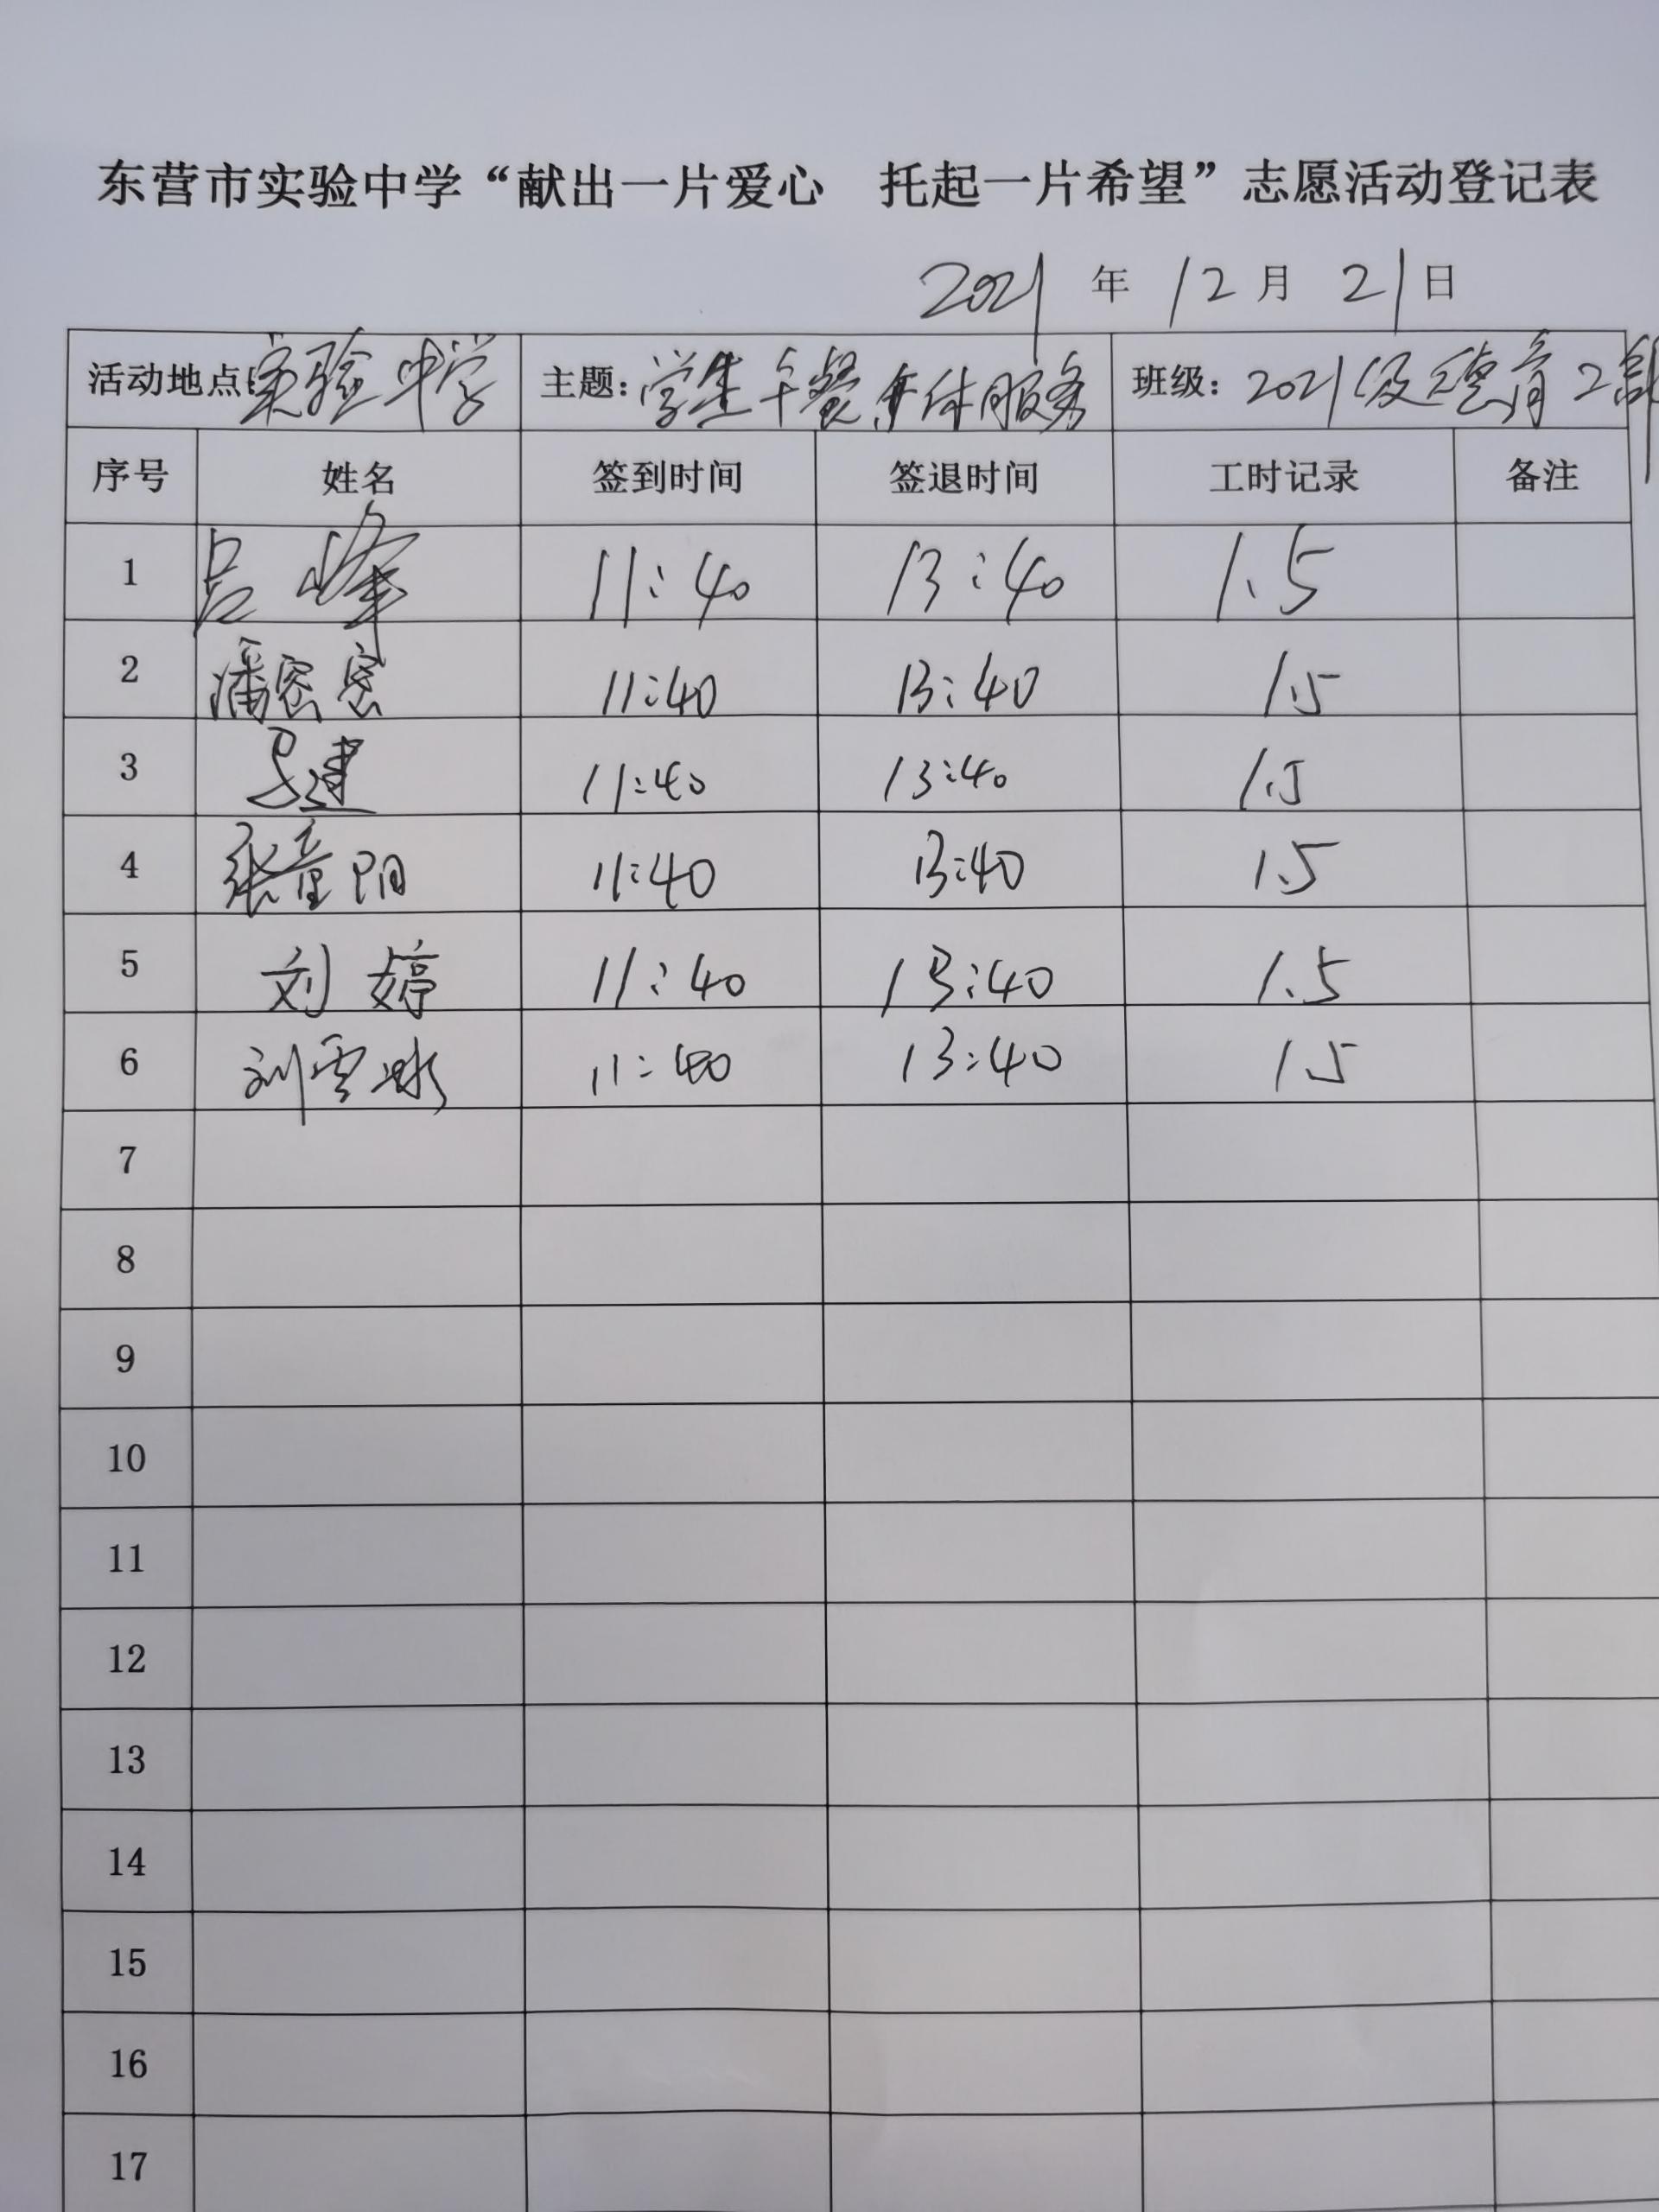 东营市实验中学“献出一片爱心 托起一片希望”志愿活动登记表
2021 年 12 月 21 日
活动地点:实验中学 主题:学生午餐集体服务 班级:2021级德育2部
序号 姓名 签到时间 签退时间 工时记录 备注
1 吕峰 11:40 13:40 1.5
2 潘密密 11:40 13:40 1.5
3 建 11:40 13:40 1.5
4 张童阳 11:40 13:40 1.5
5 刘婷 11:40 13:40 1.5
6 刘雪 11:40 13:40 1.5
7
8
9
10
11
12
13
14
15
16
17